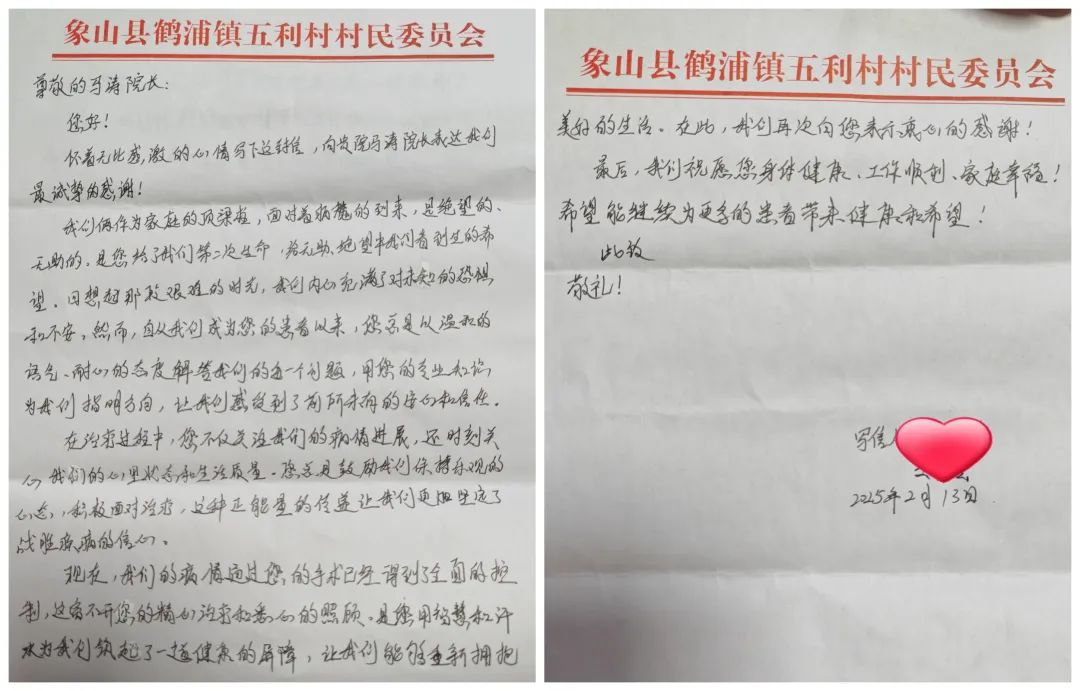 象山县鹤浦镇五利村村民委员会
尊敬的马涛院长：
您好！
怀着无比感激的心情写下这封信，向贵院马涛院长表达我们
最诚挚的感谢！
我们俩作为家庭的顶梁柱，面对着病魔的到来，是绝望的、
无助的、是您给了我们第二次生命，给无助、绝望中我们看到生的希
望。回想起那段艰难的时光，我们内心充满了对未知的恐惧
和不安，然而，自从我们成为您的患者以来，您总是以温和的
语气、耐心的态度解答我们的每一个问题，用您的专业知识，
为我们指明方向，让我们感受到了前所未有的安心和信任。
在治疗过程中，您不仅关注我们的病情进展，还时刻关
心我们的心里状态和生活质量。您总是鼓励我们保持乐观的
心态，积极面对治疗，这种正能量的传递让我们更加坚定了
战胜疾病的信心。
现在，我们的病情通过您的手术已经得到了全面的控
制，这离不开您的精心治疗和悉心的照顾。是您用智慧和汗
水为我们筑起了一道健康的屏障，让我们能够重新拥抱
象山县鹤浦镇五利村村民委员会
美好的生活。在此，我们再次向您表示衷心的感谢！
最后，我们祝愿您身体健康、工作顺利、家庭幸福！
希望能继续为更多的患者带来健康和希望！
此致
敬礼！
写信
2025年2月13日